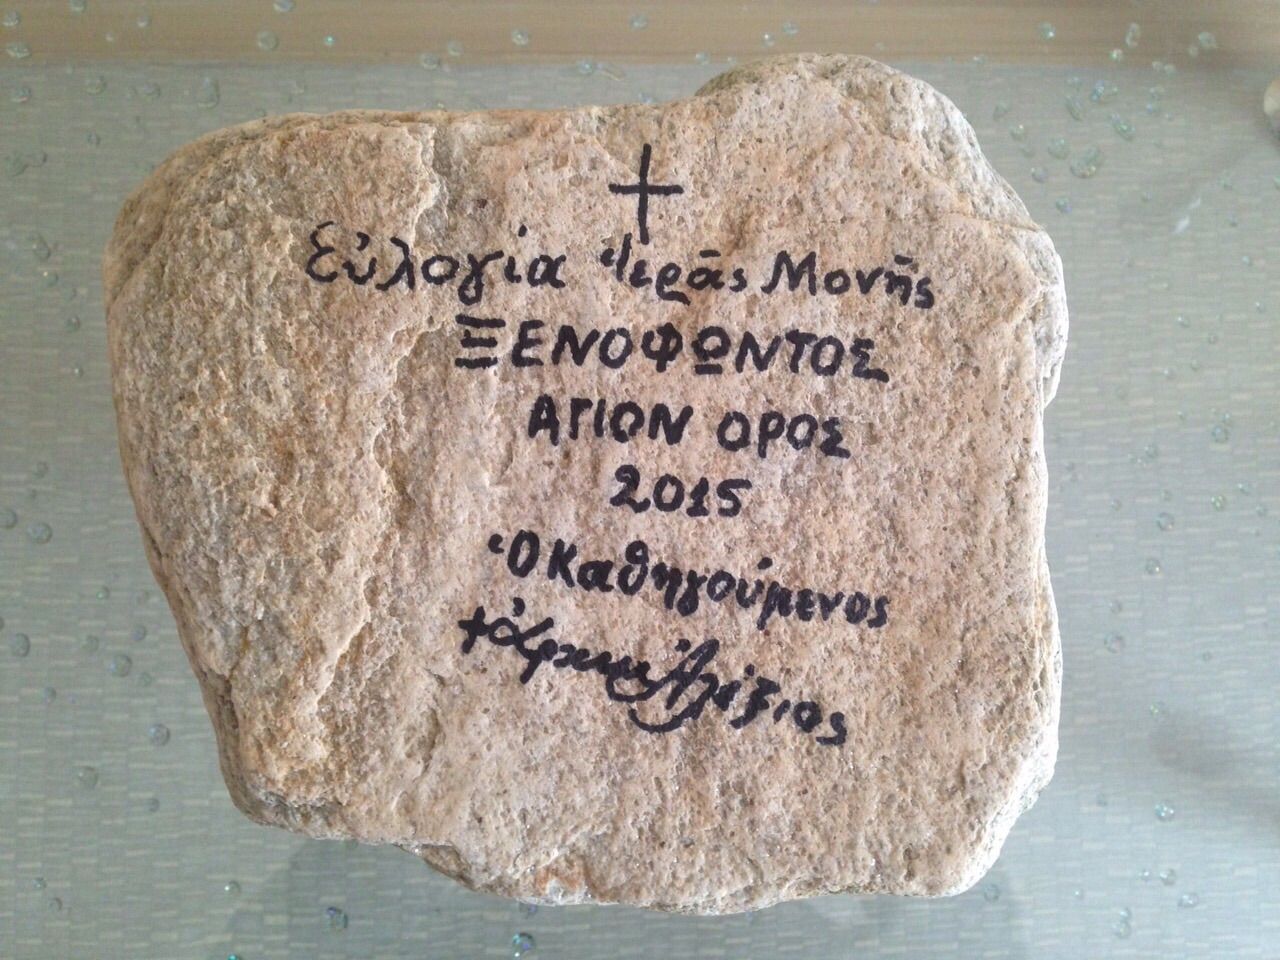 Εὐλογία Ἱερᾶς Μονῆς
ΞΕΝΟΦΩΝΤΟΣ
ΑΓΙΟΝ ΟΡΟΣ
2015
Ὁ Καθηγούμενος
+ Ἀλέξιος